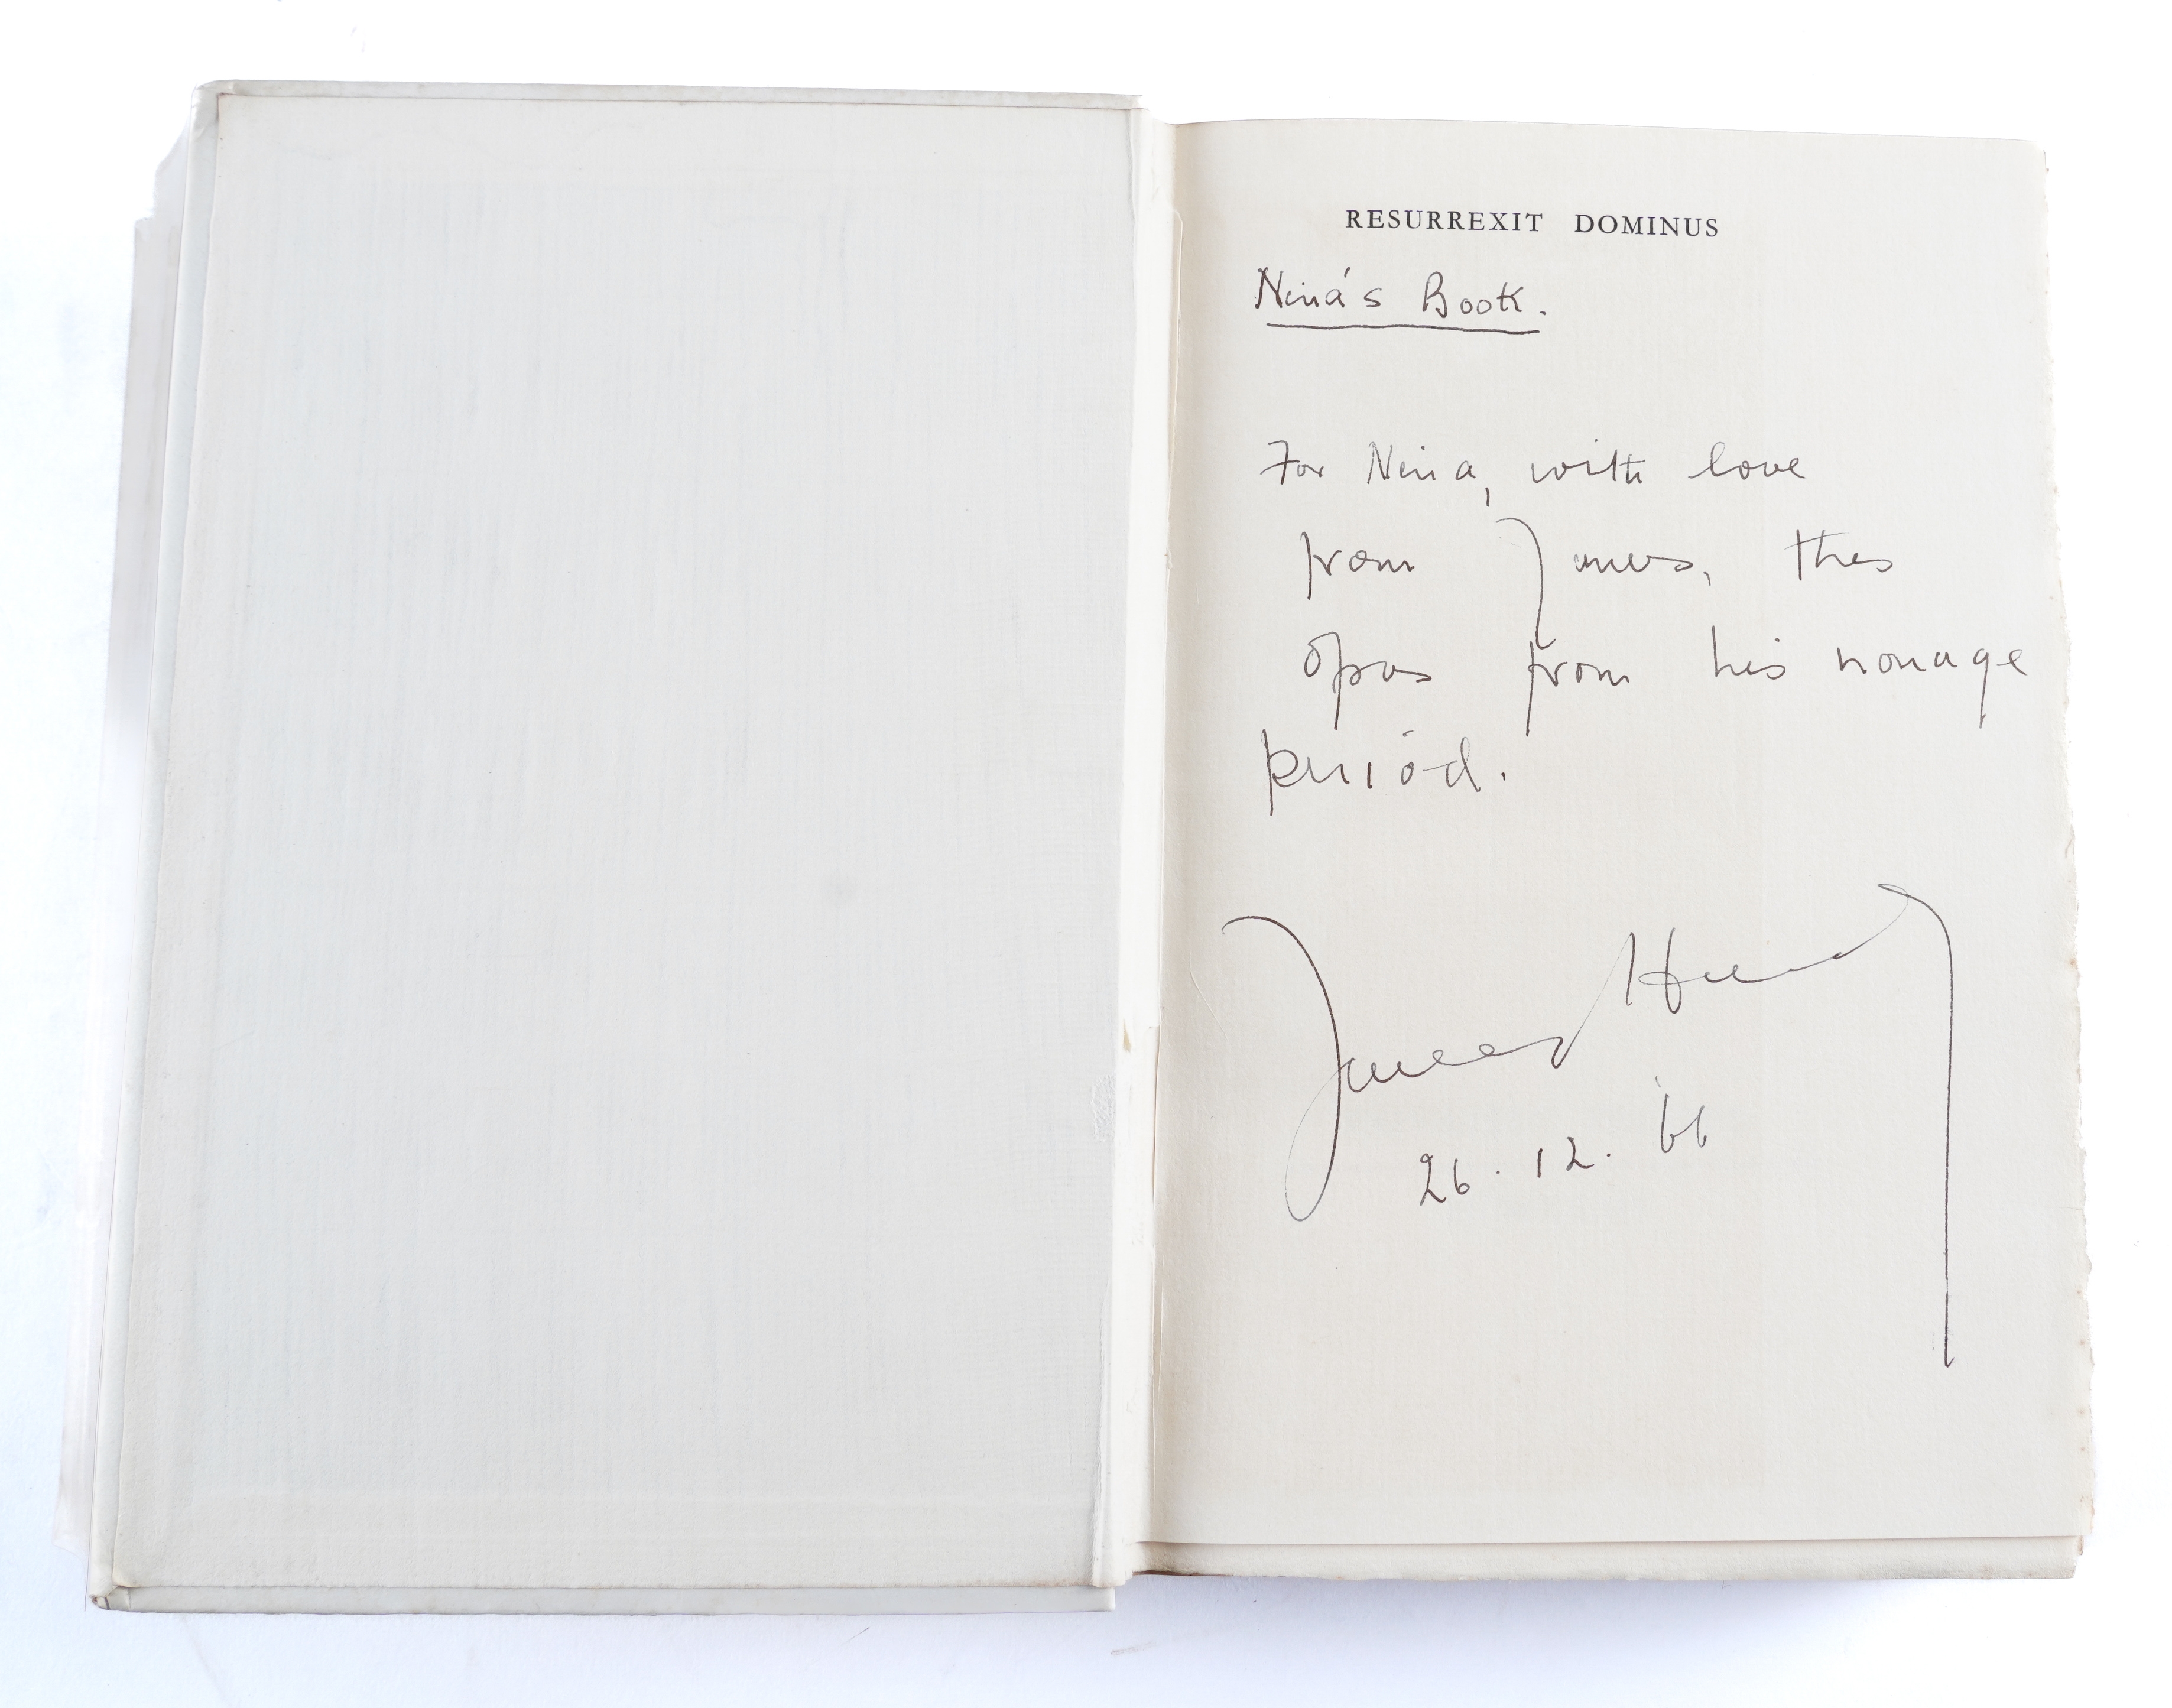 RESURREXIT DOMINUS
Nina's Book.
For Nina, with love
from James, this
opus from his nonage
period.
James
26.12.'66